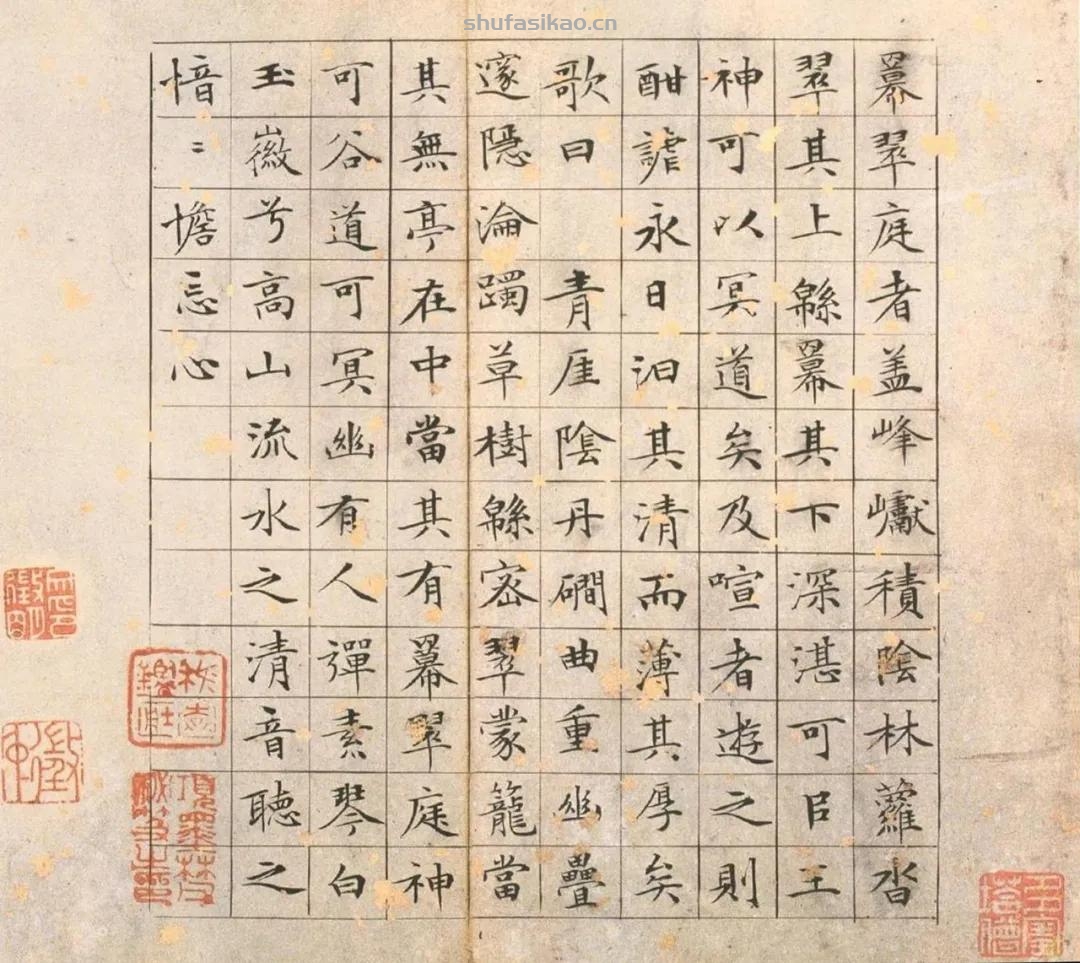 shufasikao.cn
羃翠庭者盖峰巘積陰林蘿沓
翠其上緜羃其下深湛可㠯王
神可以冥道矣及喧者遊之則
酣謔永日汨其清而薄其厚矣
歌曰 青厓陰丹磵曲重幽疊
邃隱淪躅草樹緜密翠蒙籠當
其無亭在中當其有羃翠庭神
可谷道可冥幽有人彈素琴白
玉徽兮高山流水之清音聽之
愔〻憺忘心